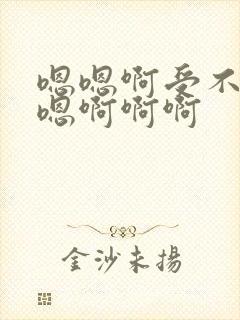 嗯嗯啊受不
嗯啊啊啊
金沙未揚